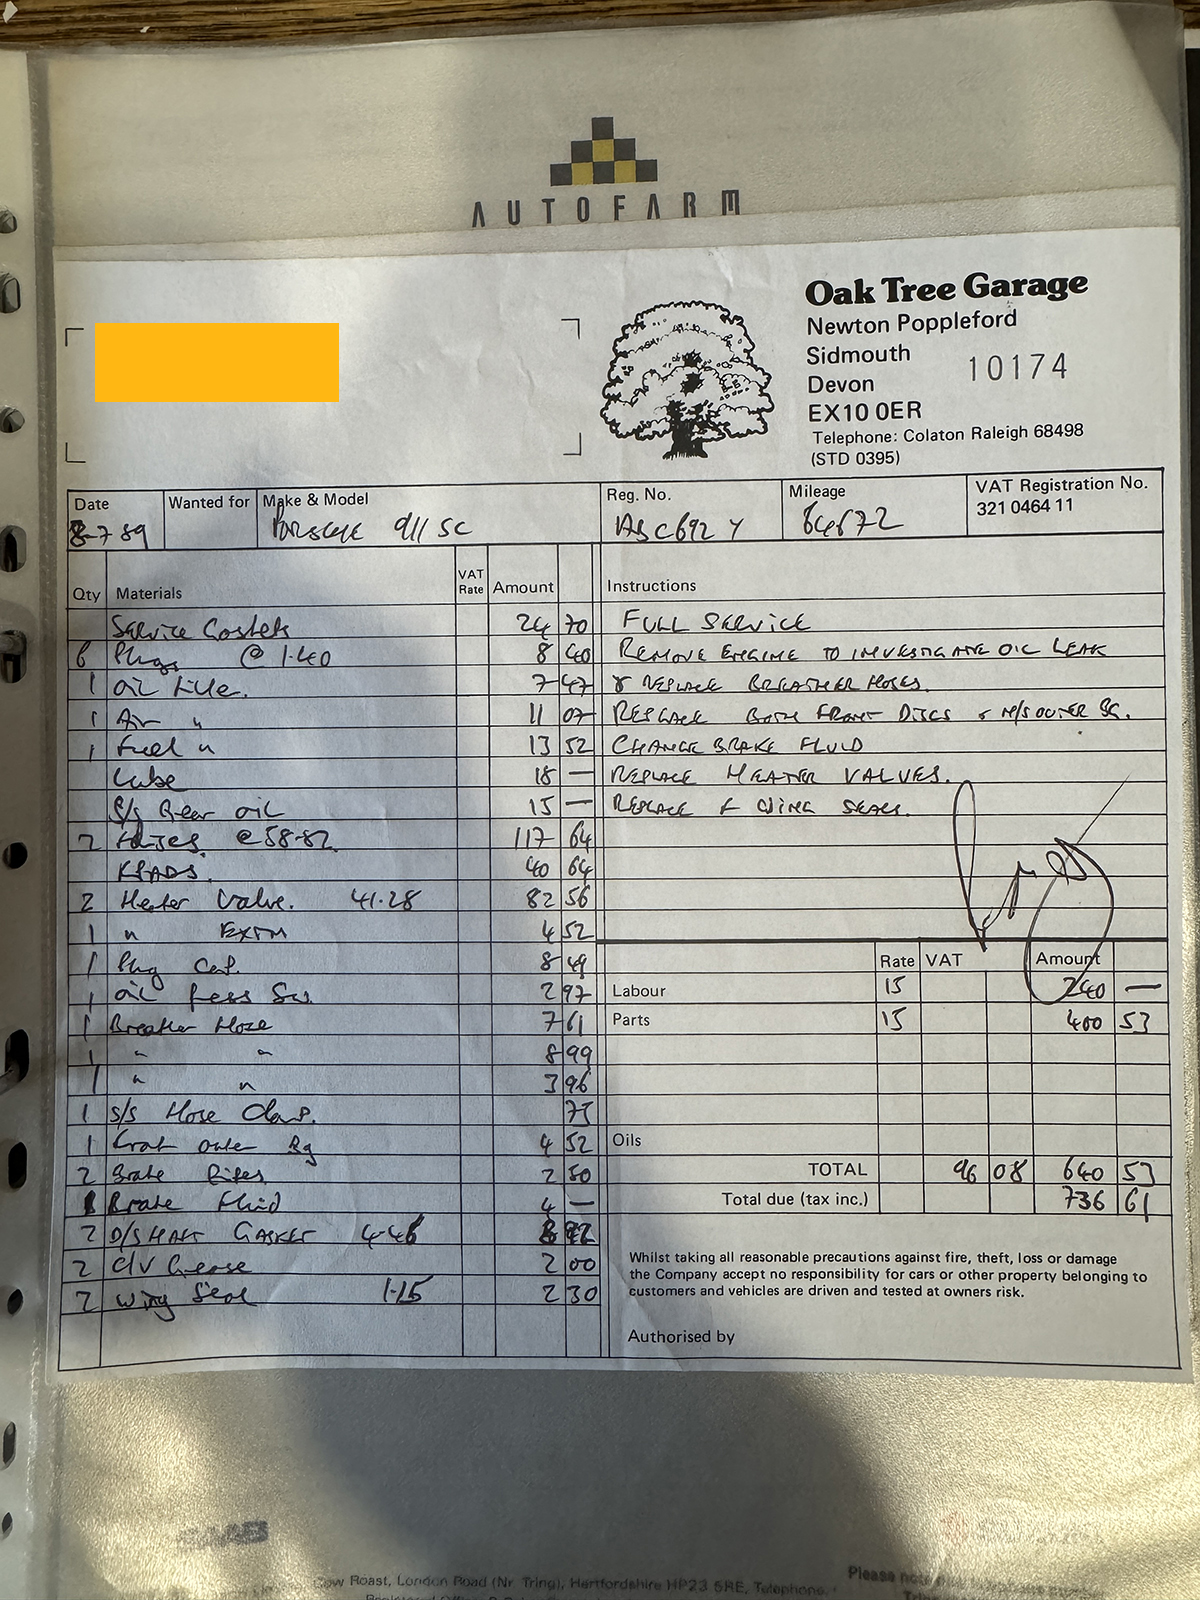 AUTOFARM
Oak Tree Garage
Newton Poppleford
Sidmouth
Devon
EX10 0ER
10174
Telephone: Colaton Raleigh 68498
(STD 0395)
Date
8-7 89
Wanted for
Make & Model
PORSCHE 911 SC
Reg. No.
ASC692 Y
Mileage
64672
VAT Registration No.
321 0464 11
Qty Materials VAT Rate Amount
Service Gaskets 24 70
6 Plugs @ 1.40 8 40
1 Oil Filte. 7 47
1 Air " 11 07
1 Fuel " 13 52
Lube 18 —
Gear oil 15 —
2 @ 58-82 117 64
PADS. 40 64
2 Heater Valve. 41.28 82 56
1 " 4 52
1 Plug Cap. 8 49
1 Oil Press Sw. 2 97
1 Breather Hoze 7 61
1 " " 8 99
1 " " 3 96
1 S/S Hose Clamp. 75
1 Front outer Bg 4 52
2 Brake Pipes 2 50
1 Brake Fluid 4 —
2 D/SHAFT GASKET 4.46 8 92
2 C/V Grease 2 00
2 Wing Seal 1.15 2 30
Instructions
FULL SERVICE
REMOVE ENGINE TO INVESTIGATE OIL LEAK
& REPLACE BREATHER HOSES.
REPLACE BOTH FRONT DISCS & N/S OUTER BG.
CHANGE BRAKE FLUID
REPLACE HEATER VALVES.
REPLACE F WING SEALS.
Rate VAT Amount
Labour 15 240 —
Parts 15 400 53
Oils
TOTAL 96 08 640 53
Total due (tax inc.) 736 61
Whilst taking all reasonable precautions against fire, theft, loss or damage
the Company accept no responsibility for cars or other property belonging to
customers and vehicles are driven and tested at owners risk.
Authorised by
Cow Roast, London Road (Nr. Tring), Hertfordshire HP23 5RE, Telephone.
Please note